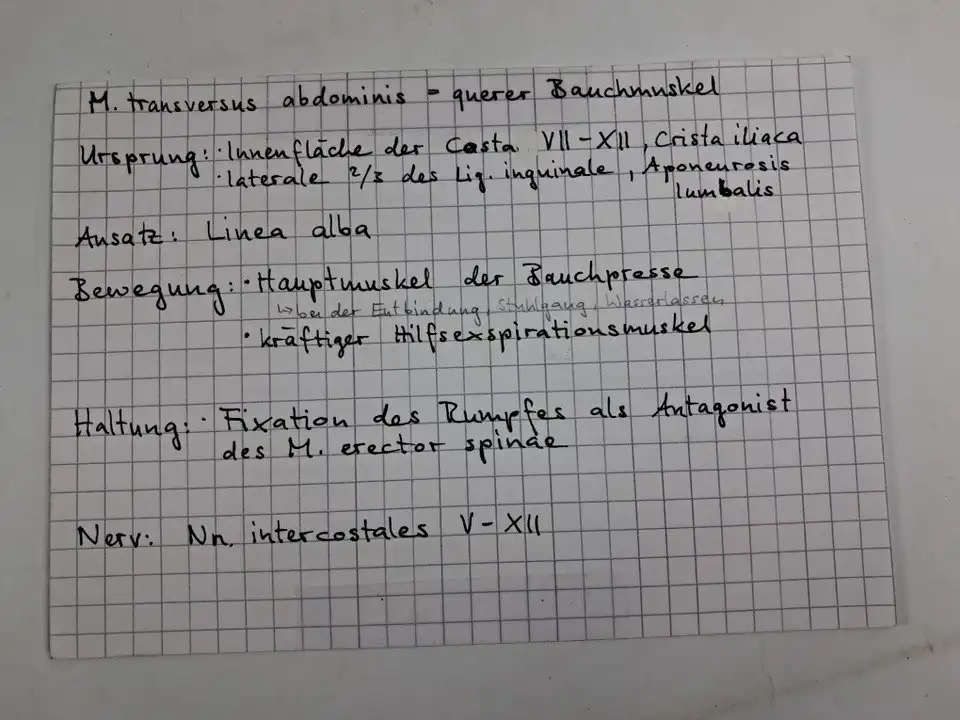 M. transversus abdominis - querer Bauchmuskel
Ursprung: · Innenfläche der Casta VII-XII, Crista iliaca
· laterale 2/3 des Lig. inguinale, Aponeurosis
lumbalis
Ansatz: Linea alba
Bewegung: · Hauptmuskel der Bauchpresse
↳ bei der Entbindung, Stuhlgang, Wasserlassen
· kräftiger Hilfsexspirationsmuskel
Haltung: · Fixation des Rumpfes als Antagonist
des M. erector spinae
Nerv: Nn. intercostales V-XII